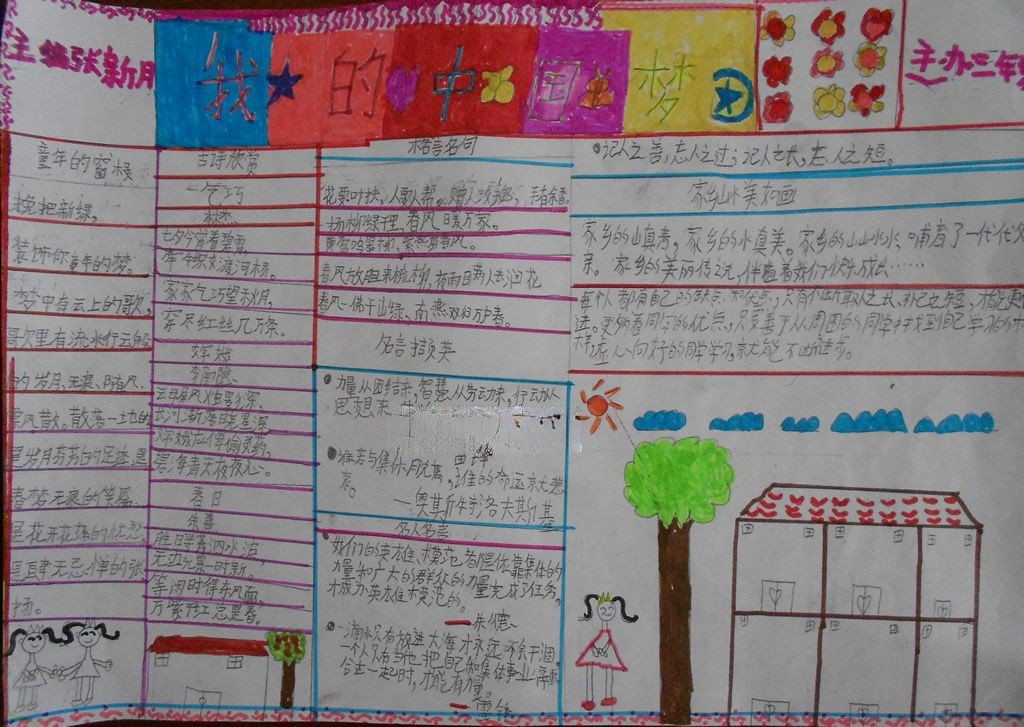 主编张新月
我的中国梦
主办三年
童年的窗棂
挽把新绿,
装饰你童年的梦。
梦中有云上的歌,
歌里有流水行云的
的岁月、无衰、随风,
散落一地的
是岁月芬芳的足迹,是
春梦无衰的笑靥。
是花开花
是肆无忌惮的张
扬。
古诗欣赏
乞巧
林杰
七夕今宵看碧霄,
牵牛织女渡河桥。
家家乞巧望秋月,
穿尽红丝几万条。
嫦娥
李商隐
云母屏风烛影深,
长河渐落晓星沉。
嫦娥应悔偷灵药,
碧海青天夜夜心。
春日
朱熹
胜日寻芳泗水滨,
无边光景一时新。
等闲时得东风面,
万紫千红总是春。
格言名句
花要叶扶,人要人帮。赠人玫瑰,手有余香。
春风日暖万家。
春风放胆来梳柳,夜雨瞒人去润花
春风一拂千山绿、南燕双归万户春。
名言撷英
力量从团结来,智慧从劳动来,行动从
思想来
谁若与集体脱离,谁的命运就大悲
哀。
—奥斯特洛夫斯基
名人名言
我们的英雄、模范者是依靠集体的
力量和广大的群众的力量完成了任务,
才成为英雄模范的。
—朱德
一滴水只有放进大海才永远不会干涸。
一个人只有当他把自己和集体事业
合在一起时,才能有力量。
—雷锋
记人之善,忘人之过;记人之长,忘人之短。
家乡山水美如画
家乡的山真青,家乡的水真美。家乡的山山水水,哺育了一代代父
亲。家乡的美丽传说,伴随着我们快乐成长……
每个人都有自己的缺点和优点,只有不断取人之长、补己之短,才能更
进。要多看同学的优点,只要善于从周围的同学中找到自己学习的
样,虚心向好的同学学习,就能不断进步。